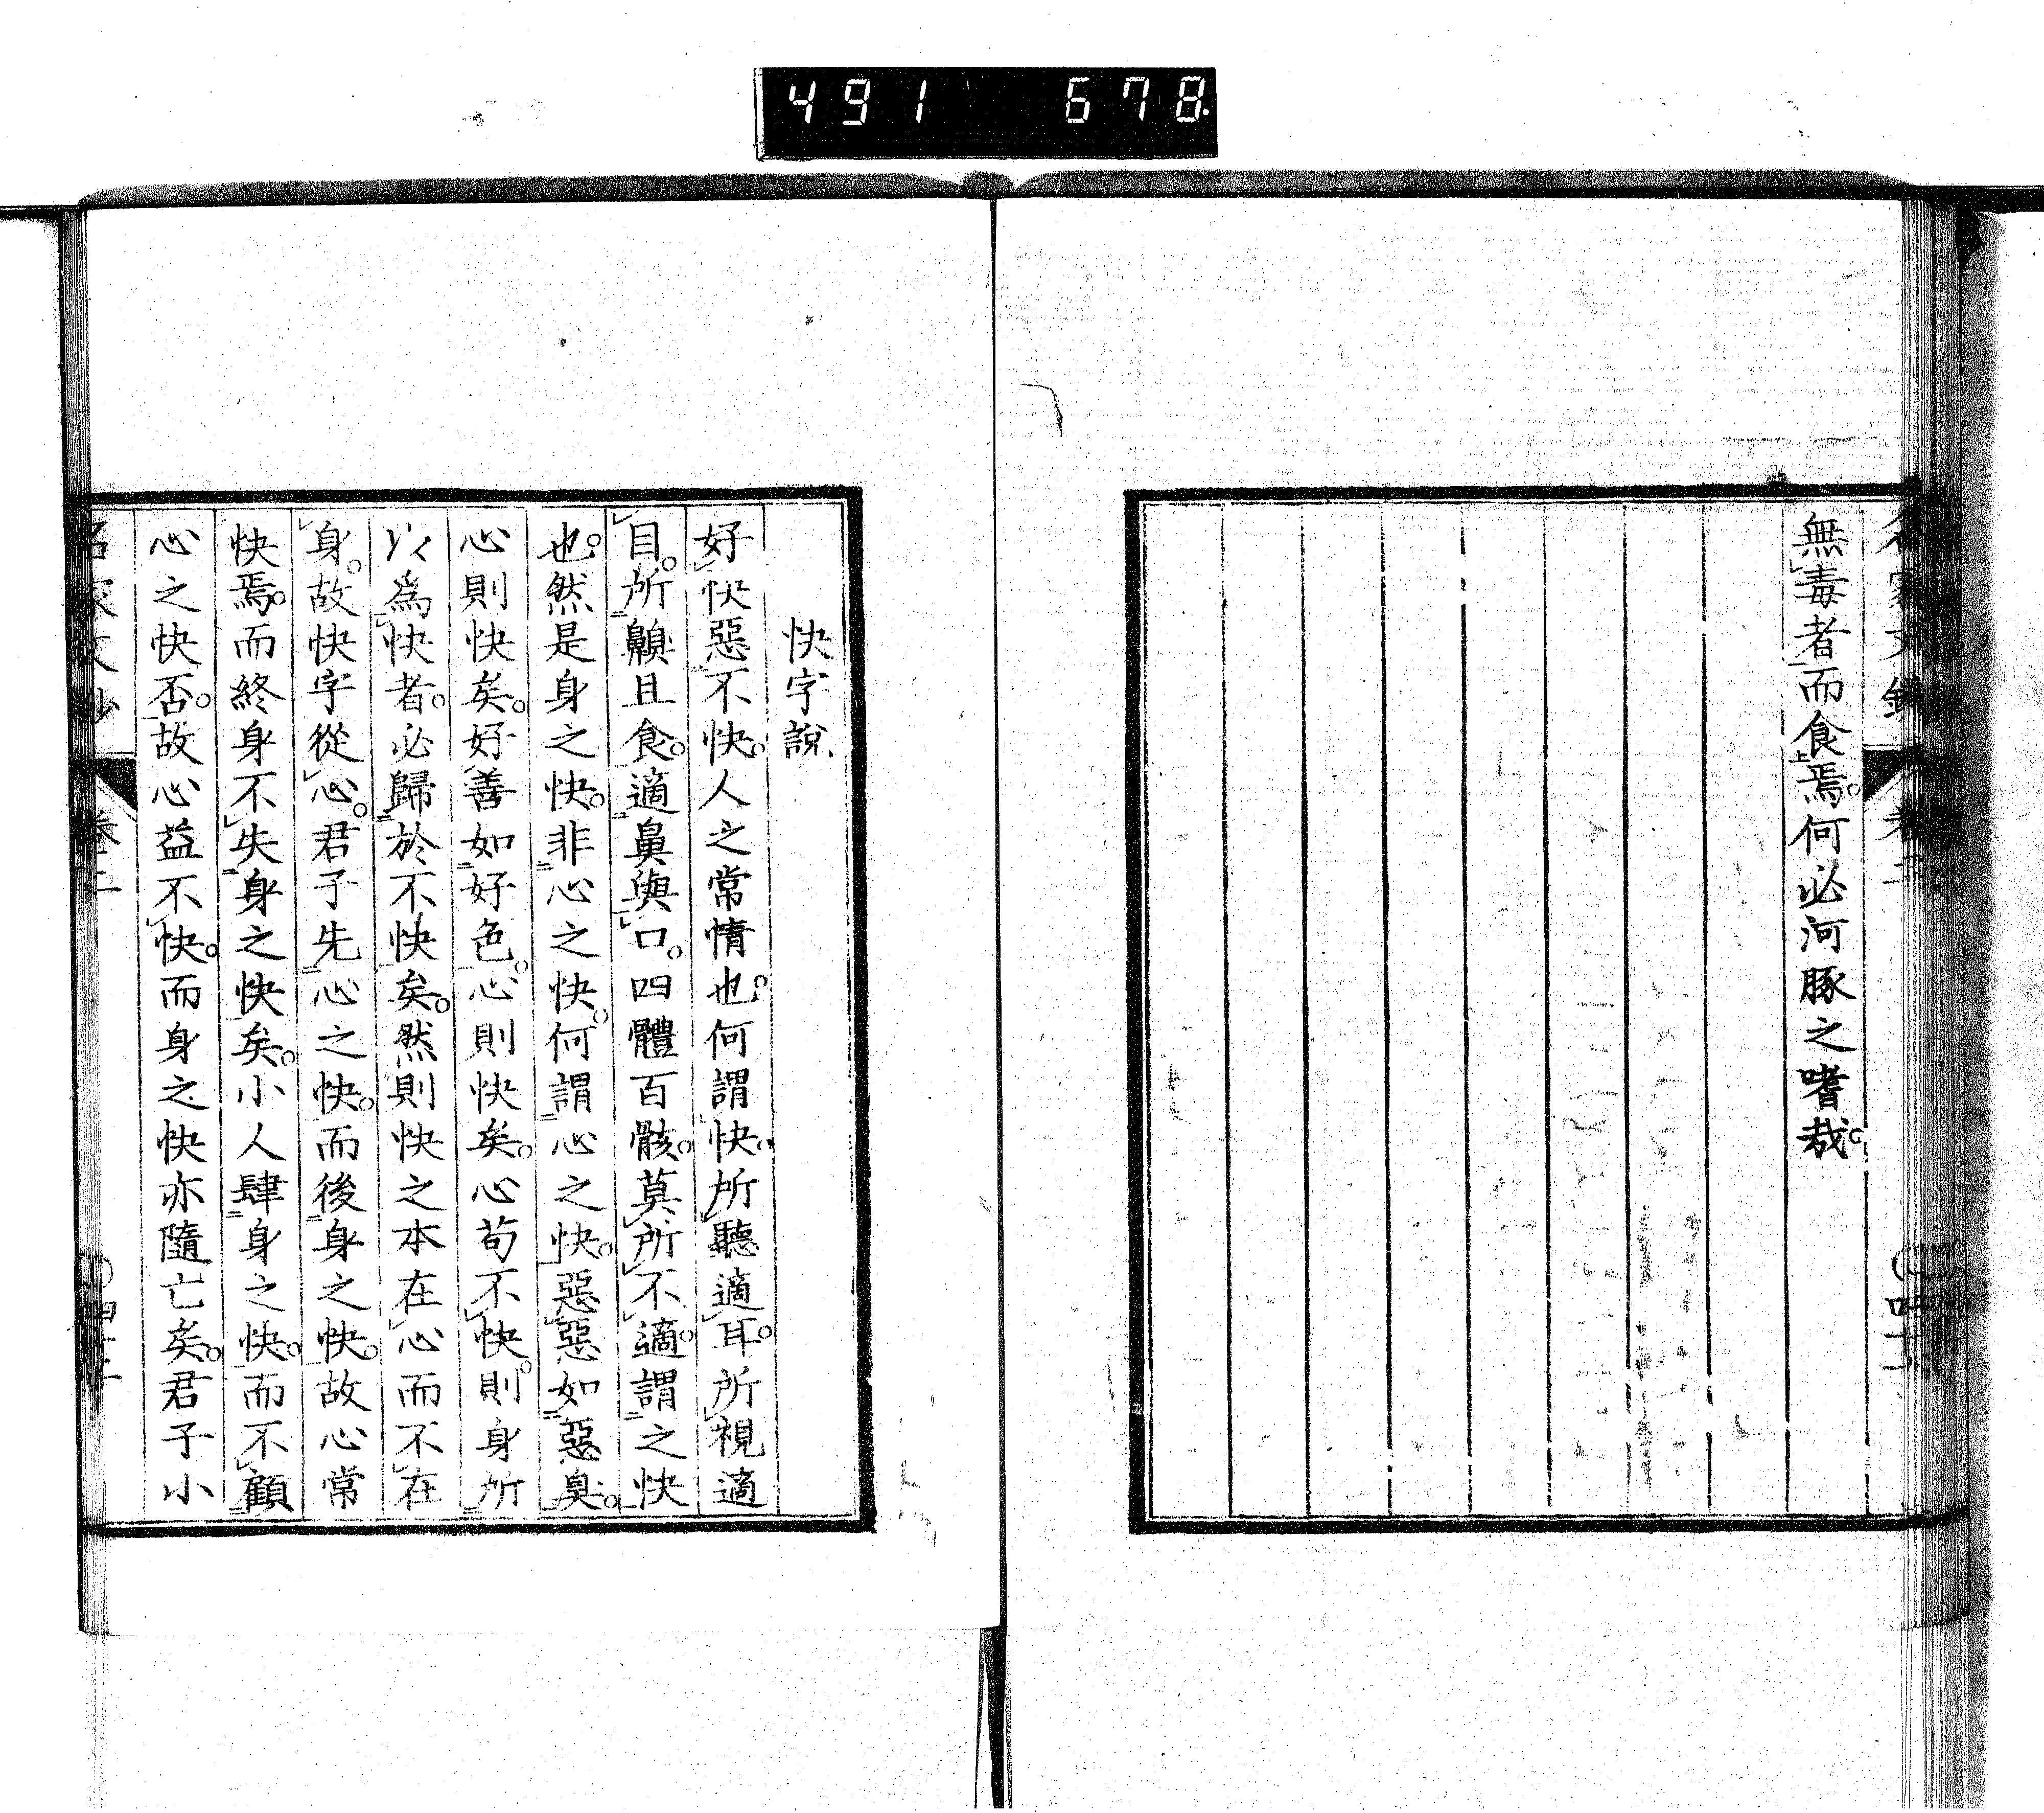 491 678
無毒者而食焉。何必河豚之嗜哉。
快字說
好快惡不快。人之常情也。何謂快。所聽適耳。所視適
目。所齅且食。適鼻與口。四體百骸。莫所不適。謂之快
也。然是身之快。非心之快。何謂心之快。惡惡如惡臭。
心則快矣。好善如好色。心則快矣。心苟不快。則身所
以為快者。必歸於不快矣。然則快之本在心而不在
身。故快字從心。君子先心之快。而後身之快。故心常
快焉。而終身不失身之快矣。小人肆身之快。而不顧
心之快否。故心益不快。而身之快亦隨亡矣。君子小